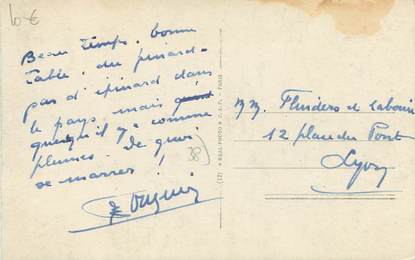 10 €
Beau temps, bonne
table, du pinard
pas d'épinard dans
le pays, mais
quoiqu'il y a comme
plumes de quoi
se marrer
38
(12) REAL-PHOTO C.A.P. PARIS
MM. Flinders de
12 place du Pont
Lyon